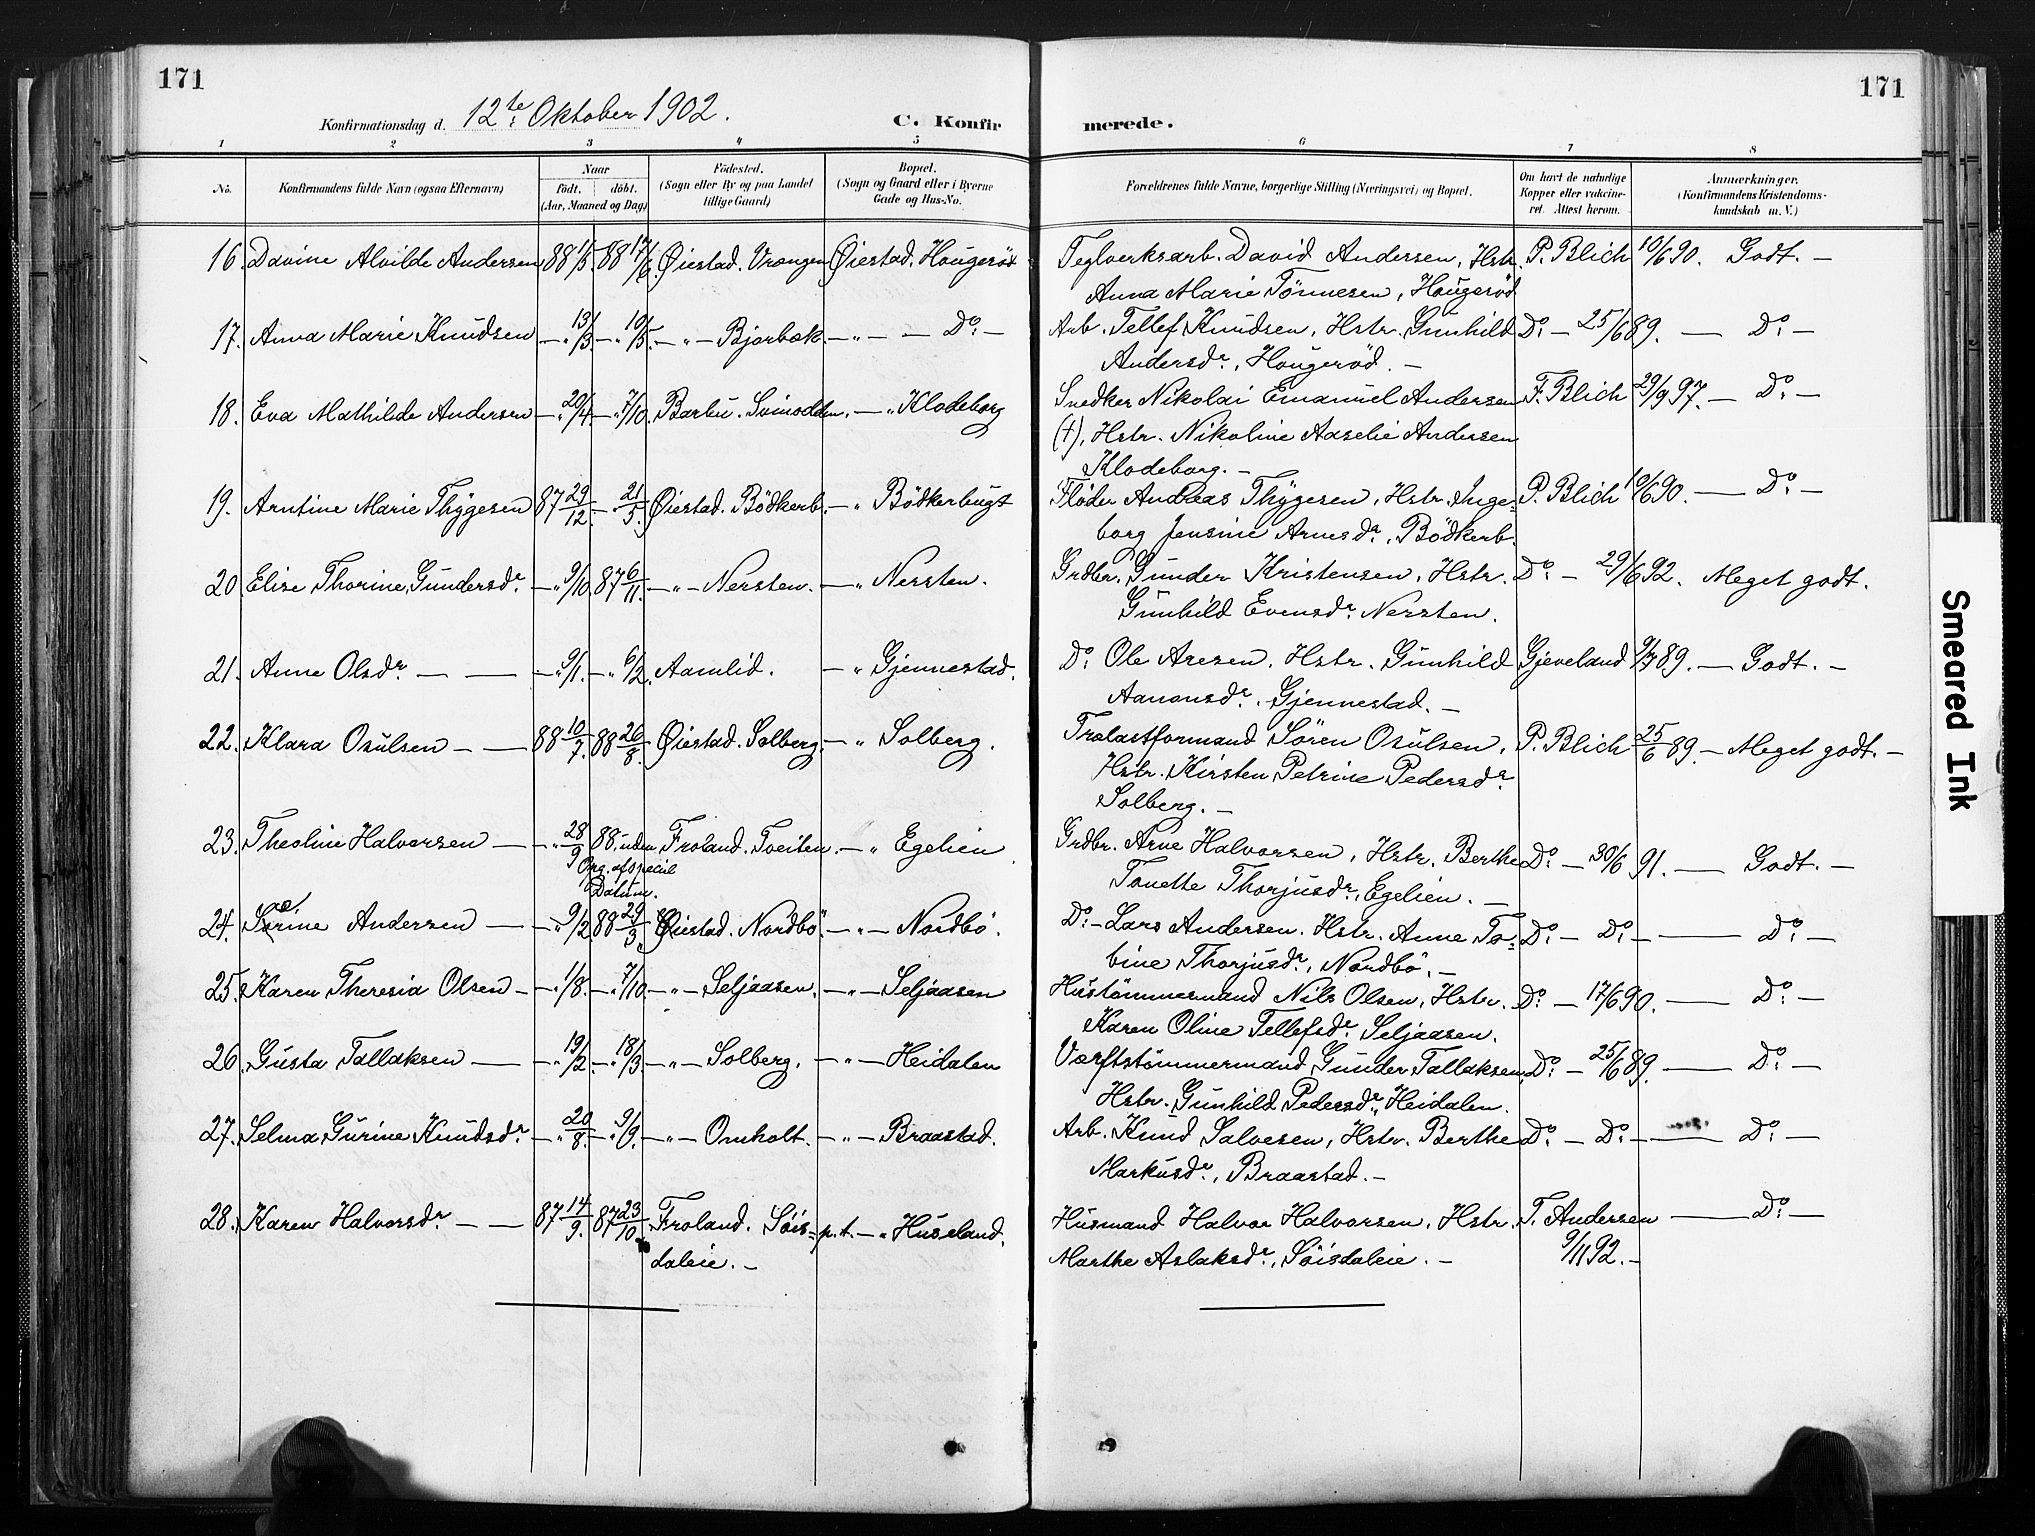 171
171
Konfirmationsdag d. 12te Oktober 1902.
C. Konfirmerede.
1 2 3 4 5 6 7 8
No. Konfirmandens fulde Navn (ogsaa Efternavn) Naar født. døbt. (Aar, Maaned og Dag) Fødested. (Sogn eller By og paa Landet tillige Gaard) Bopæl. (Sogn og Gaard eller i Byerne Gade og Hus-No. Forældrenes fulde Navne, borgerlige Stilling (Næringsvei) og Bopæl. Om havt de naturlige Kopper eller vakcineret. Attest herom. Anmærkninger. (Konfirmandens Kristendomskundskab m. V.)
16. Davine Alvilde Andersen 88 1/5 88 17/6 Øiestad. Vrangen Øiestad. Hougerød Teglverksarb. David Andersen, Hstr. P. Blich 10/6 90. Godt. —
Anna Marie Tönnesen, Hougerød
17. Anna Marie Knudsen —„— 13/3 —„— 10/5 —„— Bjorbæk. —„— — Do. — Arb. Tellef Knudsen, Hstr. Gunhild Do. — 25/6 89. — Do. —
Andersdr., Hougerød. —
18. Eva Mathilde Andersen —„— 20/4 —„— 7/10 Barbu. Svinodden. —„— Klodeborg Snedker Nikolai Emanuel Andersen F. Blich 29/9 97. — Do. —
(†), Hstr. Nikoline Aaselie Andersen
Klodeborg. —
19. Arntine Marie Thygesen 87 29/12. —„— 21/5. Øiestad. Bödkerb. —„ Bödkerbugt Fløder Andreas Thygesen, Hstr. Inge= P. Blich 10/6 90. — Do. —
borg Jensine Arnesdr., Bödkerb.
20. Elise Thorine Gundersdr. —„— 9/10. 87 6/11. —„— Nersten. —„ Nersten. Grdbr. Gunder Kristensen, Hstr. Do. — 29/6 92. Meget godt.
Gunhild Evensdr. Nersten.
21. Anne Olsdr. — — —„— 9/1. —„— 6/2. Aamlid. —„ Gjennestad. Do. Ole Aresen, Hstr. Gunhild Gjeveland 9/7 89. — Godt. —
Aanonsdr., Gjennestad. —
22. Klara Osulsen — — 88 10/7. 88 26/8. Øiestad. Solberg. —„ Solberg. Trælastformand Sören Osulsen, P. Blich 25/6 89. — Meget godt. —
Hstr. Kirsten Petrine Pedersdr.
Solberg. —
23. Theoline Halvorsen — —„— 28/9 88. uden Froland. Tveiten. —„ Egelien Grdbr. Arne Halvorsen, Hstr. Berthe Do. — 30/6 91. — Godt. —
Opg. af speciel
Datum.
Tonette Thorjusdr., Egelien. —
24. Serine Andersen — —„— 9/2 88 29/3. Øiestad. Nordbö. —„— Nordbö. Do. — Lars Andersen. Hstr. Anne To= Do. — Do. — — Do. —
bine Thorjusdr., Nordbö. —
25. Karen Theresia Olsen — —„— 1/8. —„— 7/10. —„— Seljaasen. —„— Seljaasen Hustömmermand Nils Olsen, Hstr. Do. — 17/6 90. — Do. —
Karen Oline Tellefsdr. Seljaasen.
26. Gusta Tallaksen — —„— 19/2. —„— 18/3 —„— Solberg. —„— Heidalen Værftstömmermand Gunder Tallaksen, Do. — 25/6 89. — Do. —
Hstr. Gunhild Pedersdr., Heidalen.
27. Selma Gurine Knudsdr. —„— 20/8. —„— 9/9. —„— Omholt. —„— Braastad. Arb. Knud Salvesen, Hstr. Berthe Do. — Do. — — Do. —
Markusdr., Braastad. —
28. Karen Halvorsdr. — — 87 14/9. 87 23/10. Froland. Söis= p. t. —„ Huseland. Husmand Halvor Halvorsen, Hstr. T. Andersen — Do. —
daleie. — Marthe Aslaksdr., Söisdaleie. — 9/11 92. —
Smeared Ink